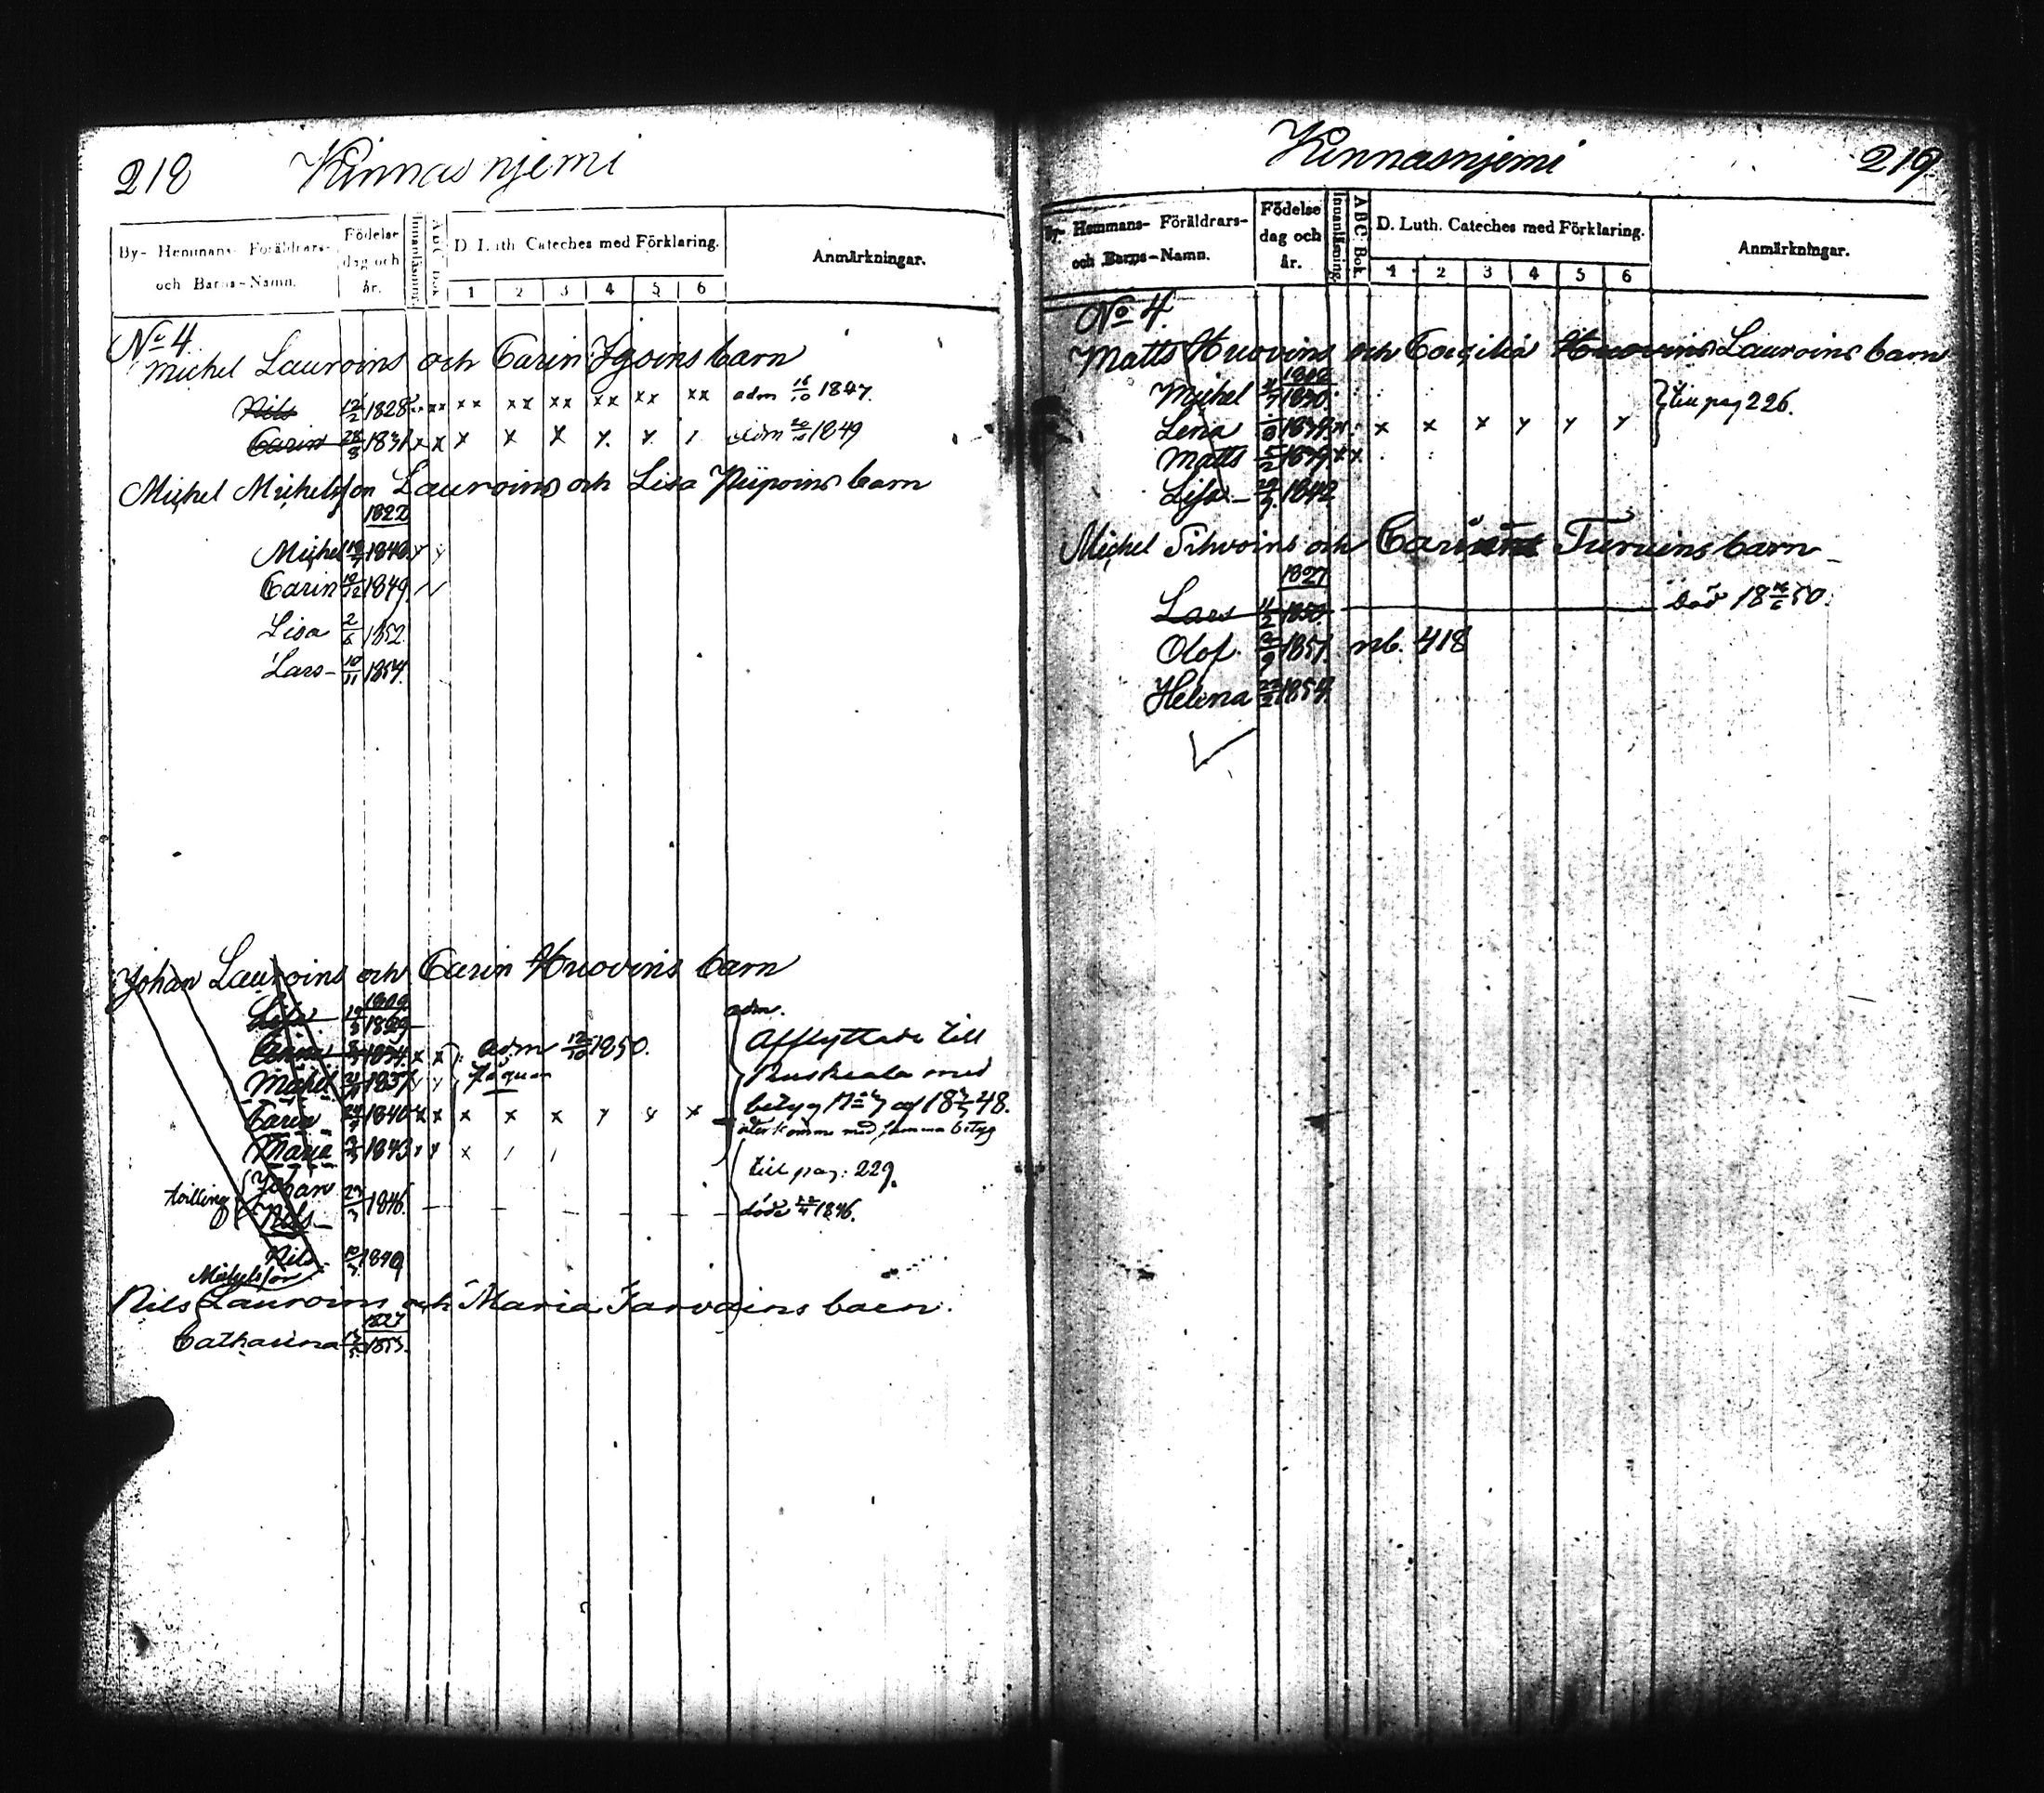 218 Kinnasnjemi
By- Hemmans- Föräldrars- och Barns-Namn. Födelse dag och år. Innanläsning. ABC Bok D. Luth. Cateches med Förklaring. 1 2 3 4 5 6 Anmärkningar.
No 4.
Michel Lauroins och Carin Ygoins barn
Nils 12/2 1828 xx xx xx xx xx xx xx adm 16/10 1847.
Carin 1831 x x x x x y. y. / adm 1849
Michel Michelsson Lauroins och Lisa Piipoins barn
1822
Michel 1846 y y
Carin 1849
Lisa 2/6 1852
Lars- 10/11 1854.
Johan Lauroins och Carin Huovins barn
1809
Lisa 1829 adm.
Anna 1834. x x adm 12/10 1850. Afflyttade till
Mahel 1837 y y Ruskeala med
Carin 1840 x x x x x y y x betyg No 7 af 18 48.
återkomne med samma betyg
Maria 1843 x y x / / till pag: 229.
tvilling Johan 1846.
Nils döde 1846.
Nils 1849
Michelsson
Nils Lauroins och Maria Tarvains barn.
1827
Catharina 1853.
Kinnasnjemi 219.
By- Hemmans- Föräldrars- och Barns-Namn. Födelse dag och år. Innanläsning. ABC Bok. D. Luth. Cateches med Förklaring. 1 2 3 4 5 6 Anmärkningar.
No 4.
Matts Huovins och Coecilia Huovins Lauroins barn
1808
Michel 1830. till pag 226.
Lena x x x y y y
Matts 5/2 1839 x x
Lisa- 1842
Michel Sihvoins och Carin Turuins barn
1827
Lars 1850. död 18 50.
Olof 1851. nb. 418
Helena 1854.